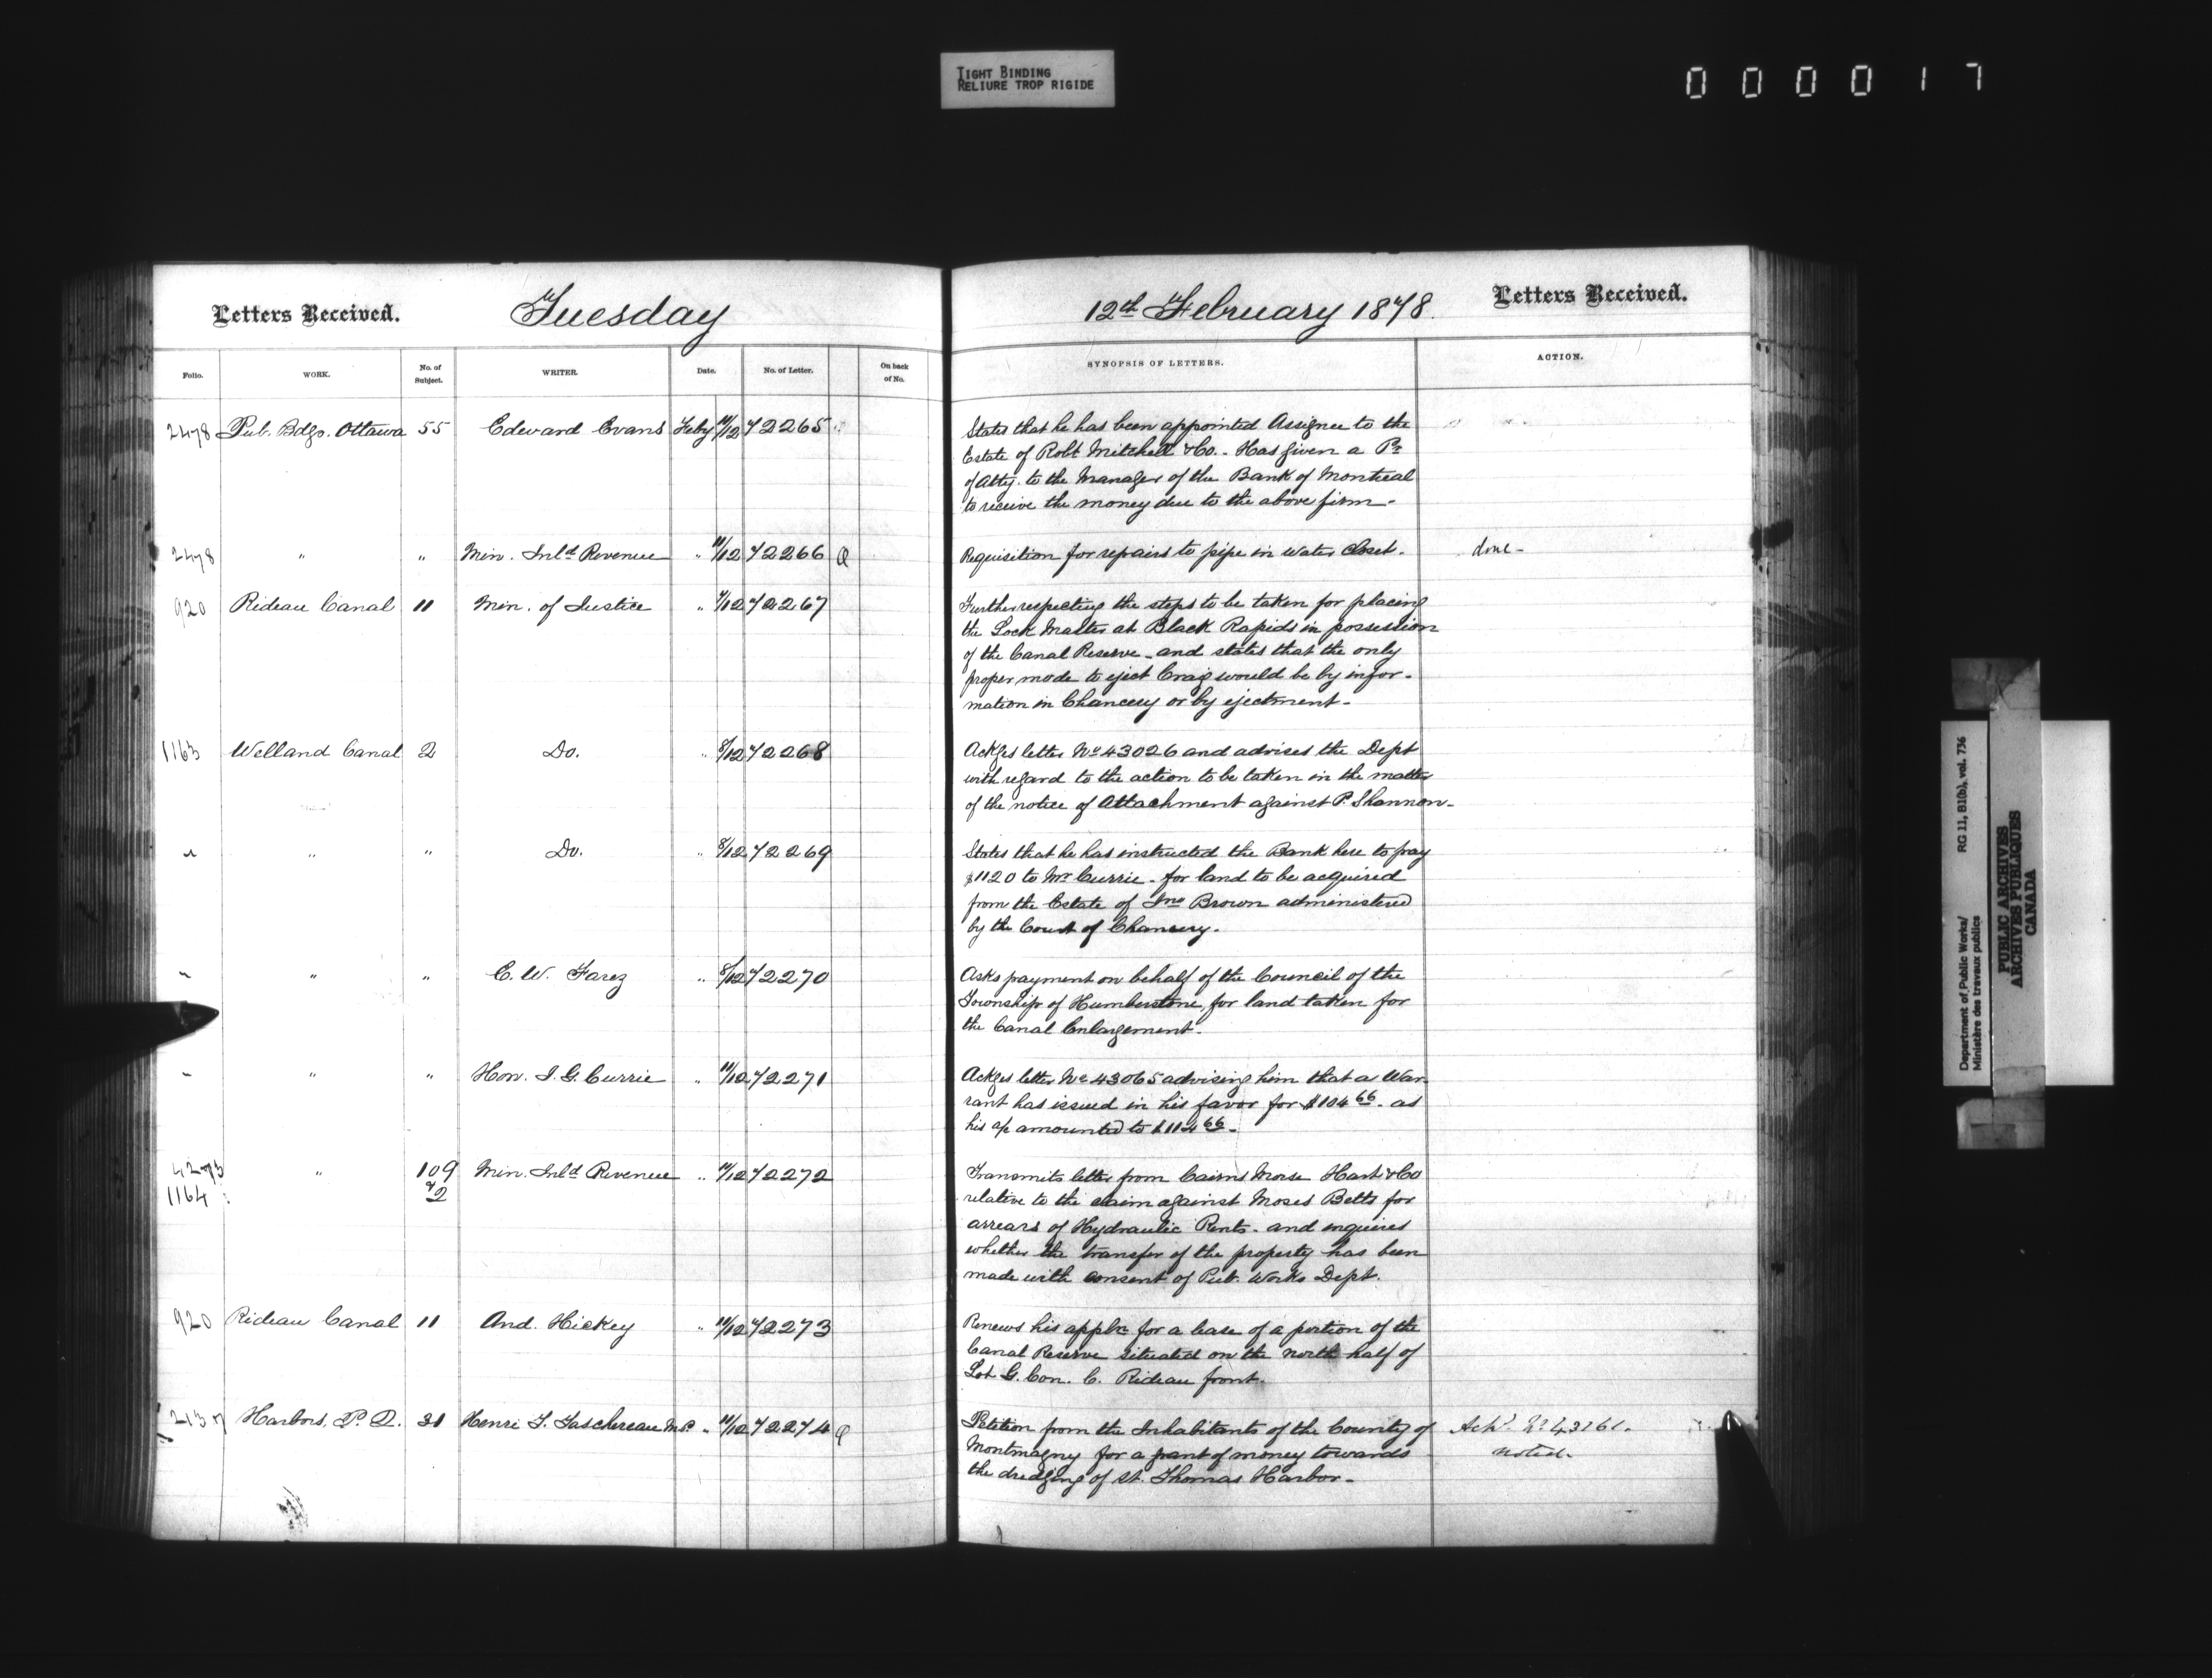 TIGHT BINDING
RELIURE TROP RIGIDE
000017
Letters Received. Tuesday 12th February 1878. Letters Received.
Folio. WORK. No. of Subject. WRITER. Date. No. of Letter. On back of No. SYNOPSIS OF LETTERS. ACTION.
2478 Pub. Bdgs. Ottawa 55 Edward Evans Feby 11/12 72265 States that he has been appointed Assignee to the
Estate of Robt Mitchell & Co. - Has given a Pr
of Atty. to the Manager of the Bank of Montreal
to receive the money due to the above firm -
2478 " " Min. Inld Revenue " 11/12 72266 Q Requisition for repairs to pipe in water closet. done -
920 Rideau Canal 11 Min. of Justice " 9/12 72267 Further respecting the steps to be taken for placing
the Lock Master at Black Rapids in possession
of the Canal Reserve - and states that the only
proper mode to eject Craig would be by infor-
mation in Chancery or by ejectment -
1163 Welland Canal 2 Do. " 8/12 72268 Ackges letter No 43026 and advises the Dept
with regard to the action to be taken in the matter
of the notice of Attachment against P. Shannon -
" " " Do. " 8/12 72269 States that he has instructed the Bank here to pay
$1120 to Mr Currie - for land to be acquired
from the Estate of Jno Brown administered
by the Court of Chancery.
" " " E. W. Farez " 8/12 72270 Asks payment on behalf of the Council of the
Township of Humberstone, for land taken for
the Canal Enlargement.
" " " Hon. J. G. Currie " 11/12 72271 Ackges letter No 43065 advising him that a War-
rant has issued in his favor for $104 66 - as
his a/c amounted to $114 66 -
4273 " 109 Min. Inld Revenue " 11/12 72272 Transmits letter from Cairns Morse Hart & Co
1164 & 2 relative to the claim against Moses Betts for
arrears of Hydraulic Rents - and inquires
whether the transfer of the property has been
made with consent of Pub. Works Dept.
920 Rideau Canal 11 And. Hickey " 11/12 72273 Renews his appln for a lease of a portion of the
Canal Reserve situated on the north half of
Lot G. Con. C. Rideau front.
2137 Harbors, P. Q. 31 Henri T. Taschereau M.P. " 11/12 72274 Q Petition from the Inhabitants of the County of Ackd No 43161.
Montmagny for a grant of money towards noted -
the dredging of St. Thomas Harbor -
Department of Public Works/ RG 11, B1(b), vol. 736
Ministère des travaux publics
PUBLIC ARCHIVES
ARCHIVES PUBLIQUES
CANADA